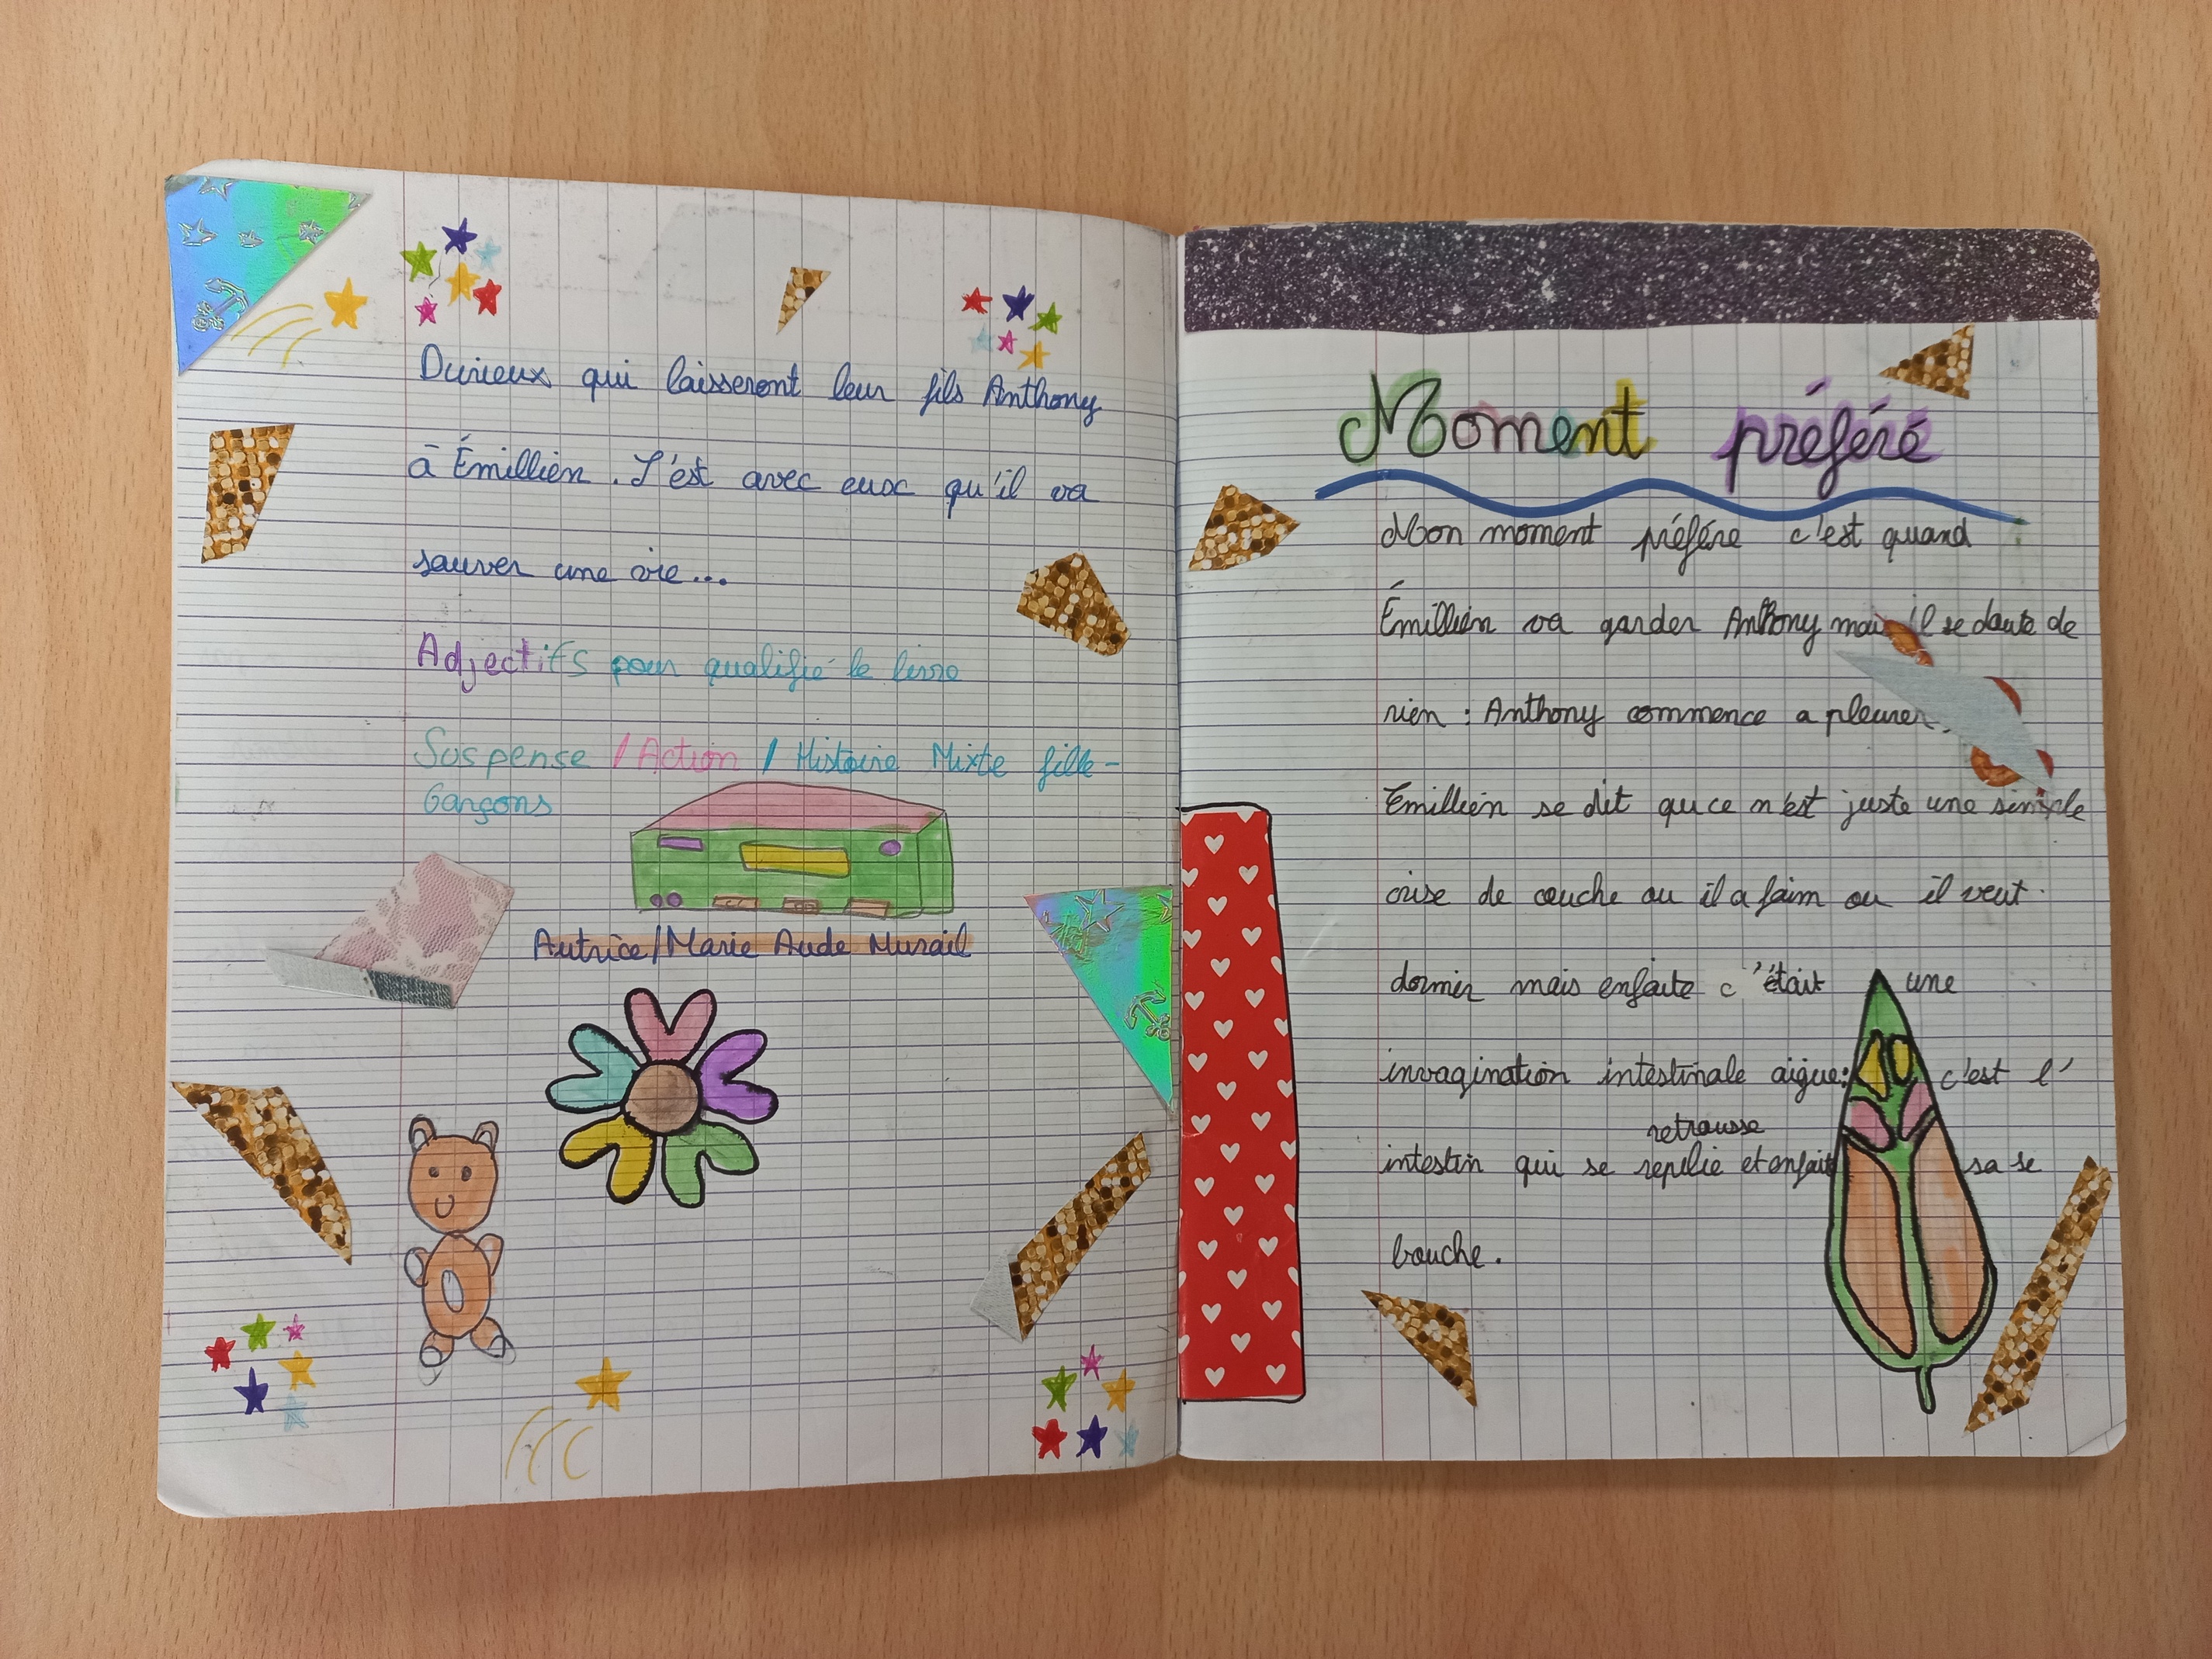 Durieux qui laisseront leur fils Anthony
à Émillien. C'est avec eux qu'il va
sauver une vie...
Adjectifs pour qualifié le livre
Suspense / Action / Histoire Mixte fille-
Garçons
Autrice/Marie Aude Murail
Moment préféré
Mon moment préfére c'est quand
Émillien va garder Anthony mais il se doute de
rien : Anthony commence a pleurer,
Emillien se dit que ce n'est juste une simple
crise de couche ou il a faim ou il veut
dormir mais enfaite c'était une
invagination intestinale aigue: c'est l'
retrousse
intestin qui se replie et enfait sa se
bouche.